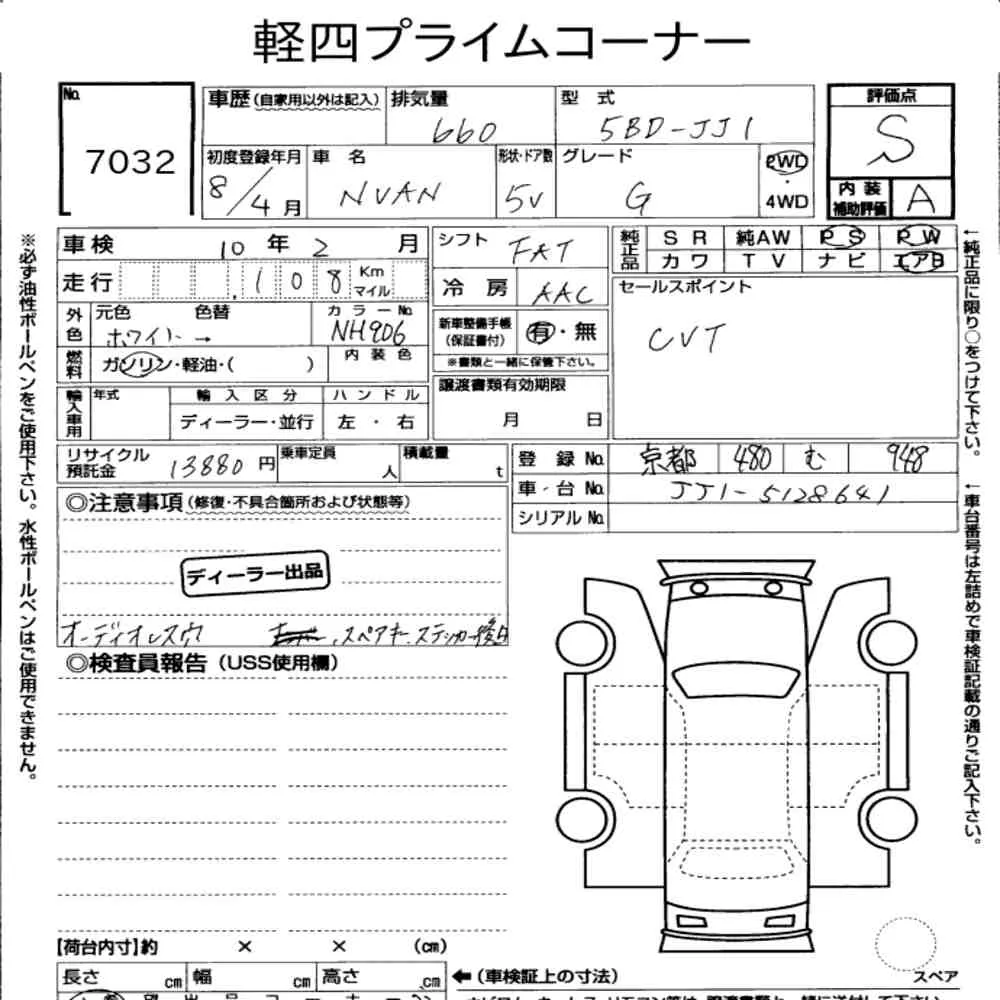 軽四プライムコーナー
No. 7032
車歴(自家用以外は記入) 排気量 660 型式 5BD-JJ1
評価点 S
初度登録年月 8/4月 車名 NVAN 形状・ドア数 5V グレード G 2WD・4WD
内装補助評価 A
車検 10年2月 シフト FAT
純正品 SR 純AW PS PW
カワ TV ナビ エアB
走行 108 Km マイル 冷房 AAC
セールスポイント
CVT
外色 元色 ホワイト→ 色替 カラーNo. NH906
新車整備手帳(保証書付) 有・無
※書類と一緒に保管下さい。
燃料 ガソリン・軽油・( ) 内装色
譲渡書類有効期限
月 日
輸入車用 年式 輸入区分 ハンドル
ディーラー・並行 左・右
リサイクル預託金 13880円 乗車定員 人 積載量 t
登録No. 京都 480 む 948
車台No. JJ1-5128641
シリアルNo.
◎注意事項(修復・不具合箇所および状態等)
ディーラー出品
オーディオレスカ
スペアキー、ステッカー後日
◎検査員報告(USS使用欄)
【荷台内寸】約 × × (cm)
長さ cm 幅 cm 高さ cm ←(車検証上の寸法)
スペア
※必ず油性ボールペンをご使用下さい。水性ボールペンはご使用できません。
←純正品に限り○をつけて下さい。
←車台番号は左詰めで車検証記載の通りご記入下さい。